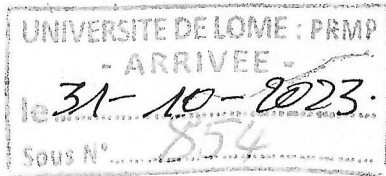 UNIVERSITE DE LOME : PRMP
- ARRIVEE -
le 31-10-2023.
Sous N° 854